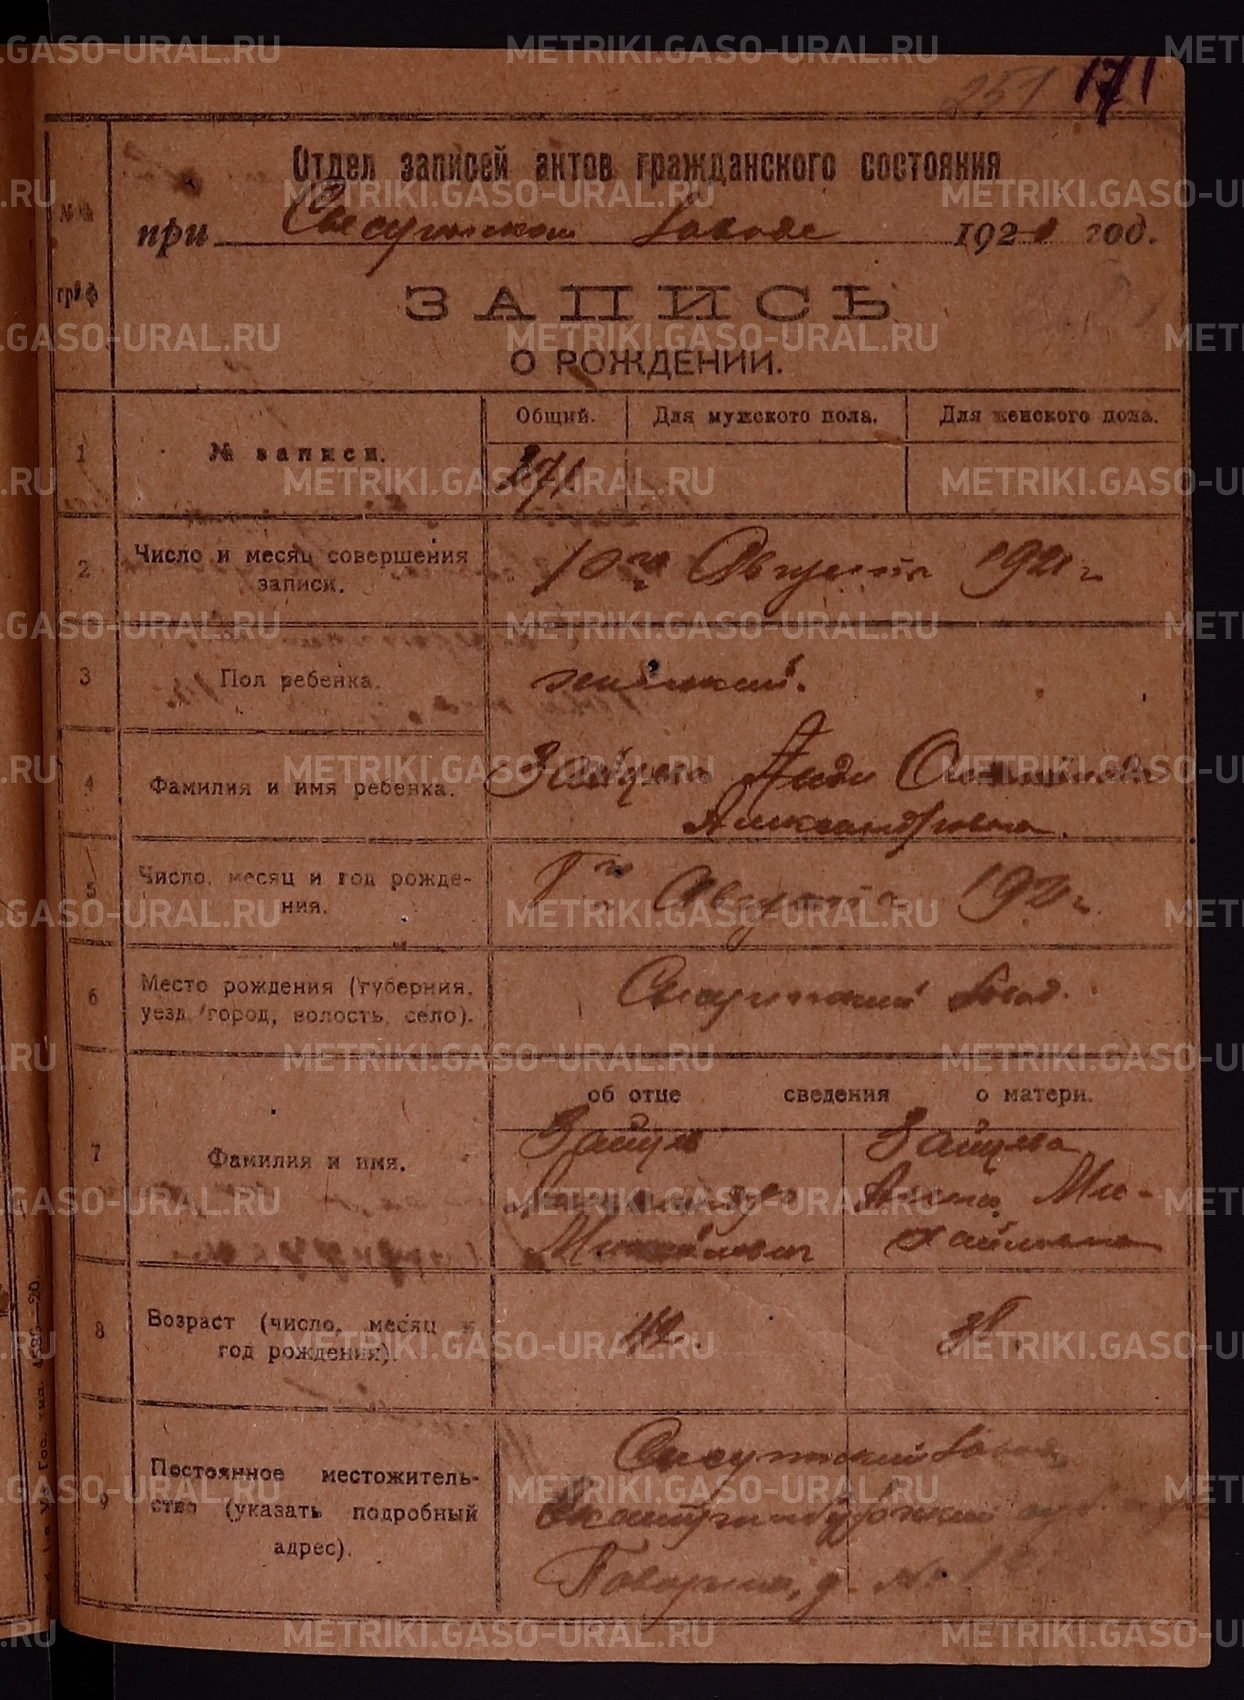 251 171
Отдел записей актов гражданского состояния
при Сысертском Заводе 1921 год.
№№
граф
ЗАПИСЬ
О РОЖДЕНИИ.
1 № записи. Общий. Для мужского пола. Для женского пола.
271
2 Число и месяц совершения
записи.
10го Августа 1921 г
3 Пол ребенка. женский.
4 Фамилия и имя ребенка. Зайцева
Александровна.
5 Число, месяц и год рожде-
ния.
Августа 1921 г.
6 Место рождения (губерния,
уезд, город, волость, село).
Сысертский Завод.
об отце сведения о матери.
7 Фамилия и имя.
Зайцев
Александр
Зайцева
Анна Ми-
хайловна
8 Возраст (число, месяц и
год рождения).
42. 38.
9 Постоянное местожитель-
ство (указать подробный
адрес).
Сысертский Завод,
Екатеринбургский
METRIKI.GASO-URAL.RU